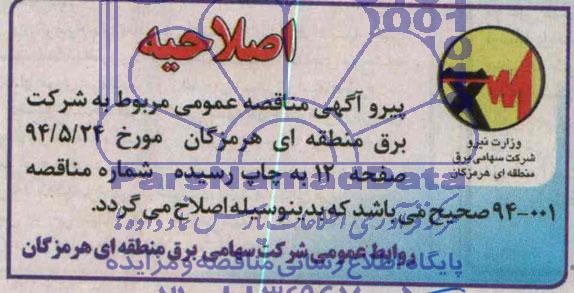 اصلاحیه
وزارت نیرو
شرکت سهامی برق
منطقه ای هرمزگان
پیرو آگهی مناقصه عمومی مربوط به شرکت
برق منطقه ای هرمزگان مورخ ۹۴/۵/۲۴
صفحه ۱۲ به چاپ رسیده شماره مناقصه
۹۴-۰۰۱ صحیح می باشد که بدینوسیله اصلاح می گردد.
روابط عمومی شرکت سهامی برق منطقه ای هرمزگان
ParsNamadData
پایگاه اطلاع رسانی مناقصه و مزایده